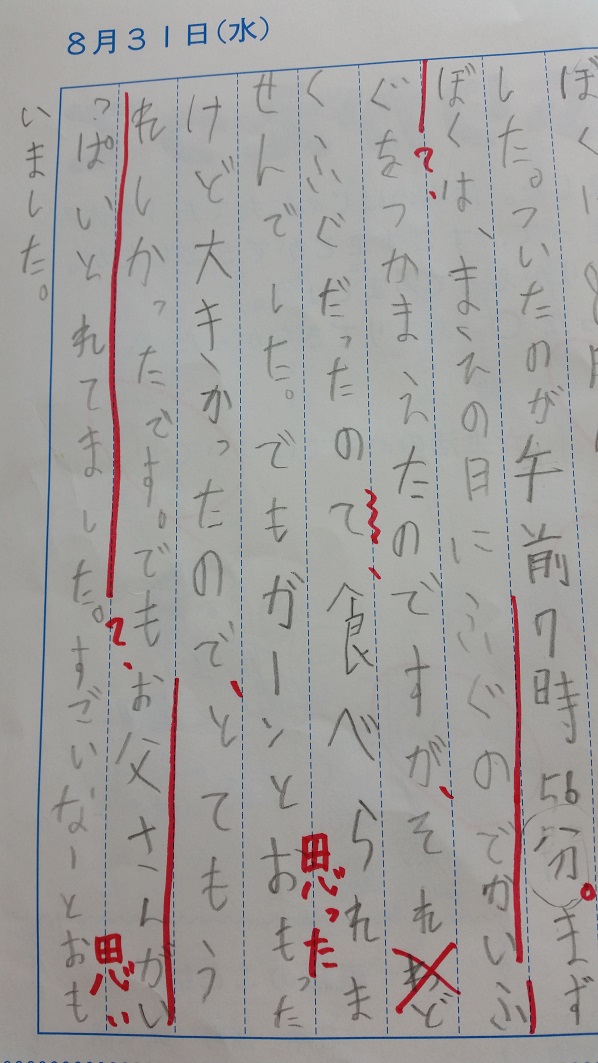 8月31日(水)
ぼく
した。ついたのが午前7時56分。まず
ぼくは、まえの日にふぐのでかいふ
ぐをつかまえたのですが、それ ど
くふぐだったのて食べられま
せんでした。でもガーンとおもった
思った
けど大きかったので、とてもう
れしかったです。でもお父さんがい
?
っぱいとれてました。すごいなーとおも
?
思い
いました。